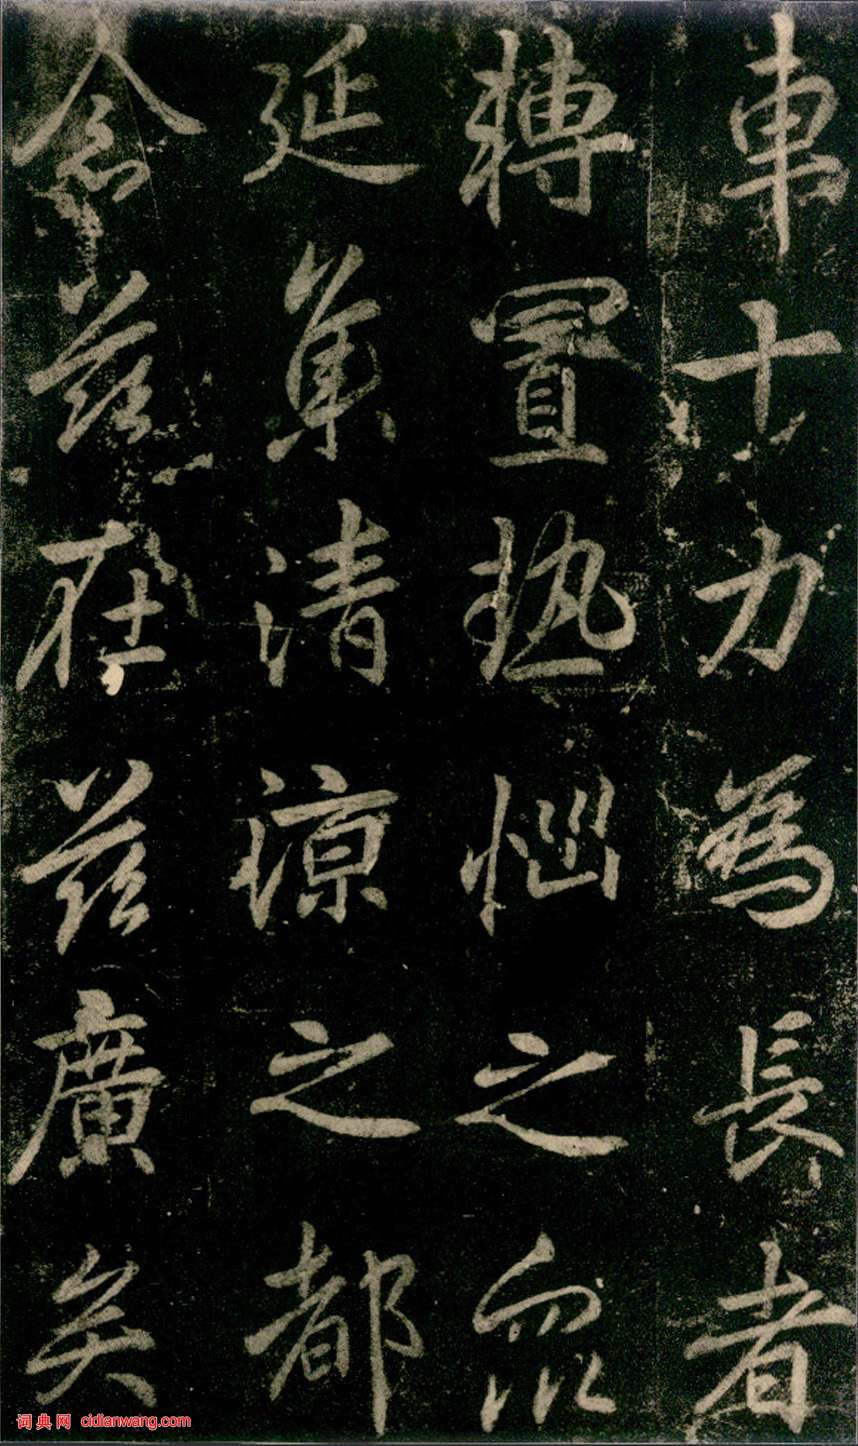 車十力為長者
轉置熱惱之眾
延集清涼之都
念茲在茲廣矣
词典网 cidianwang.com